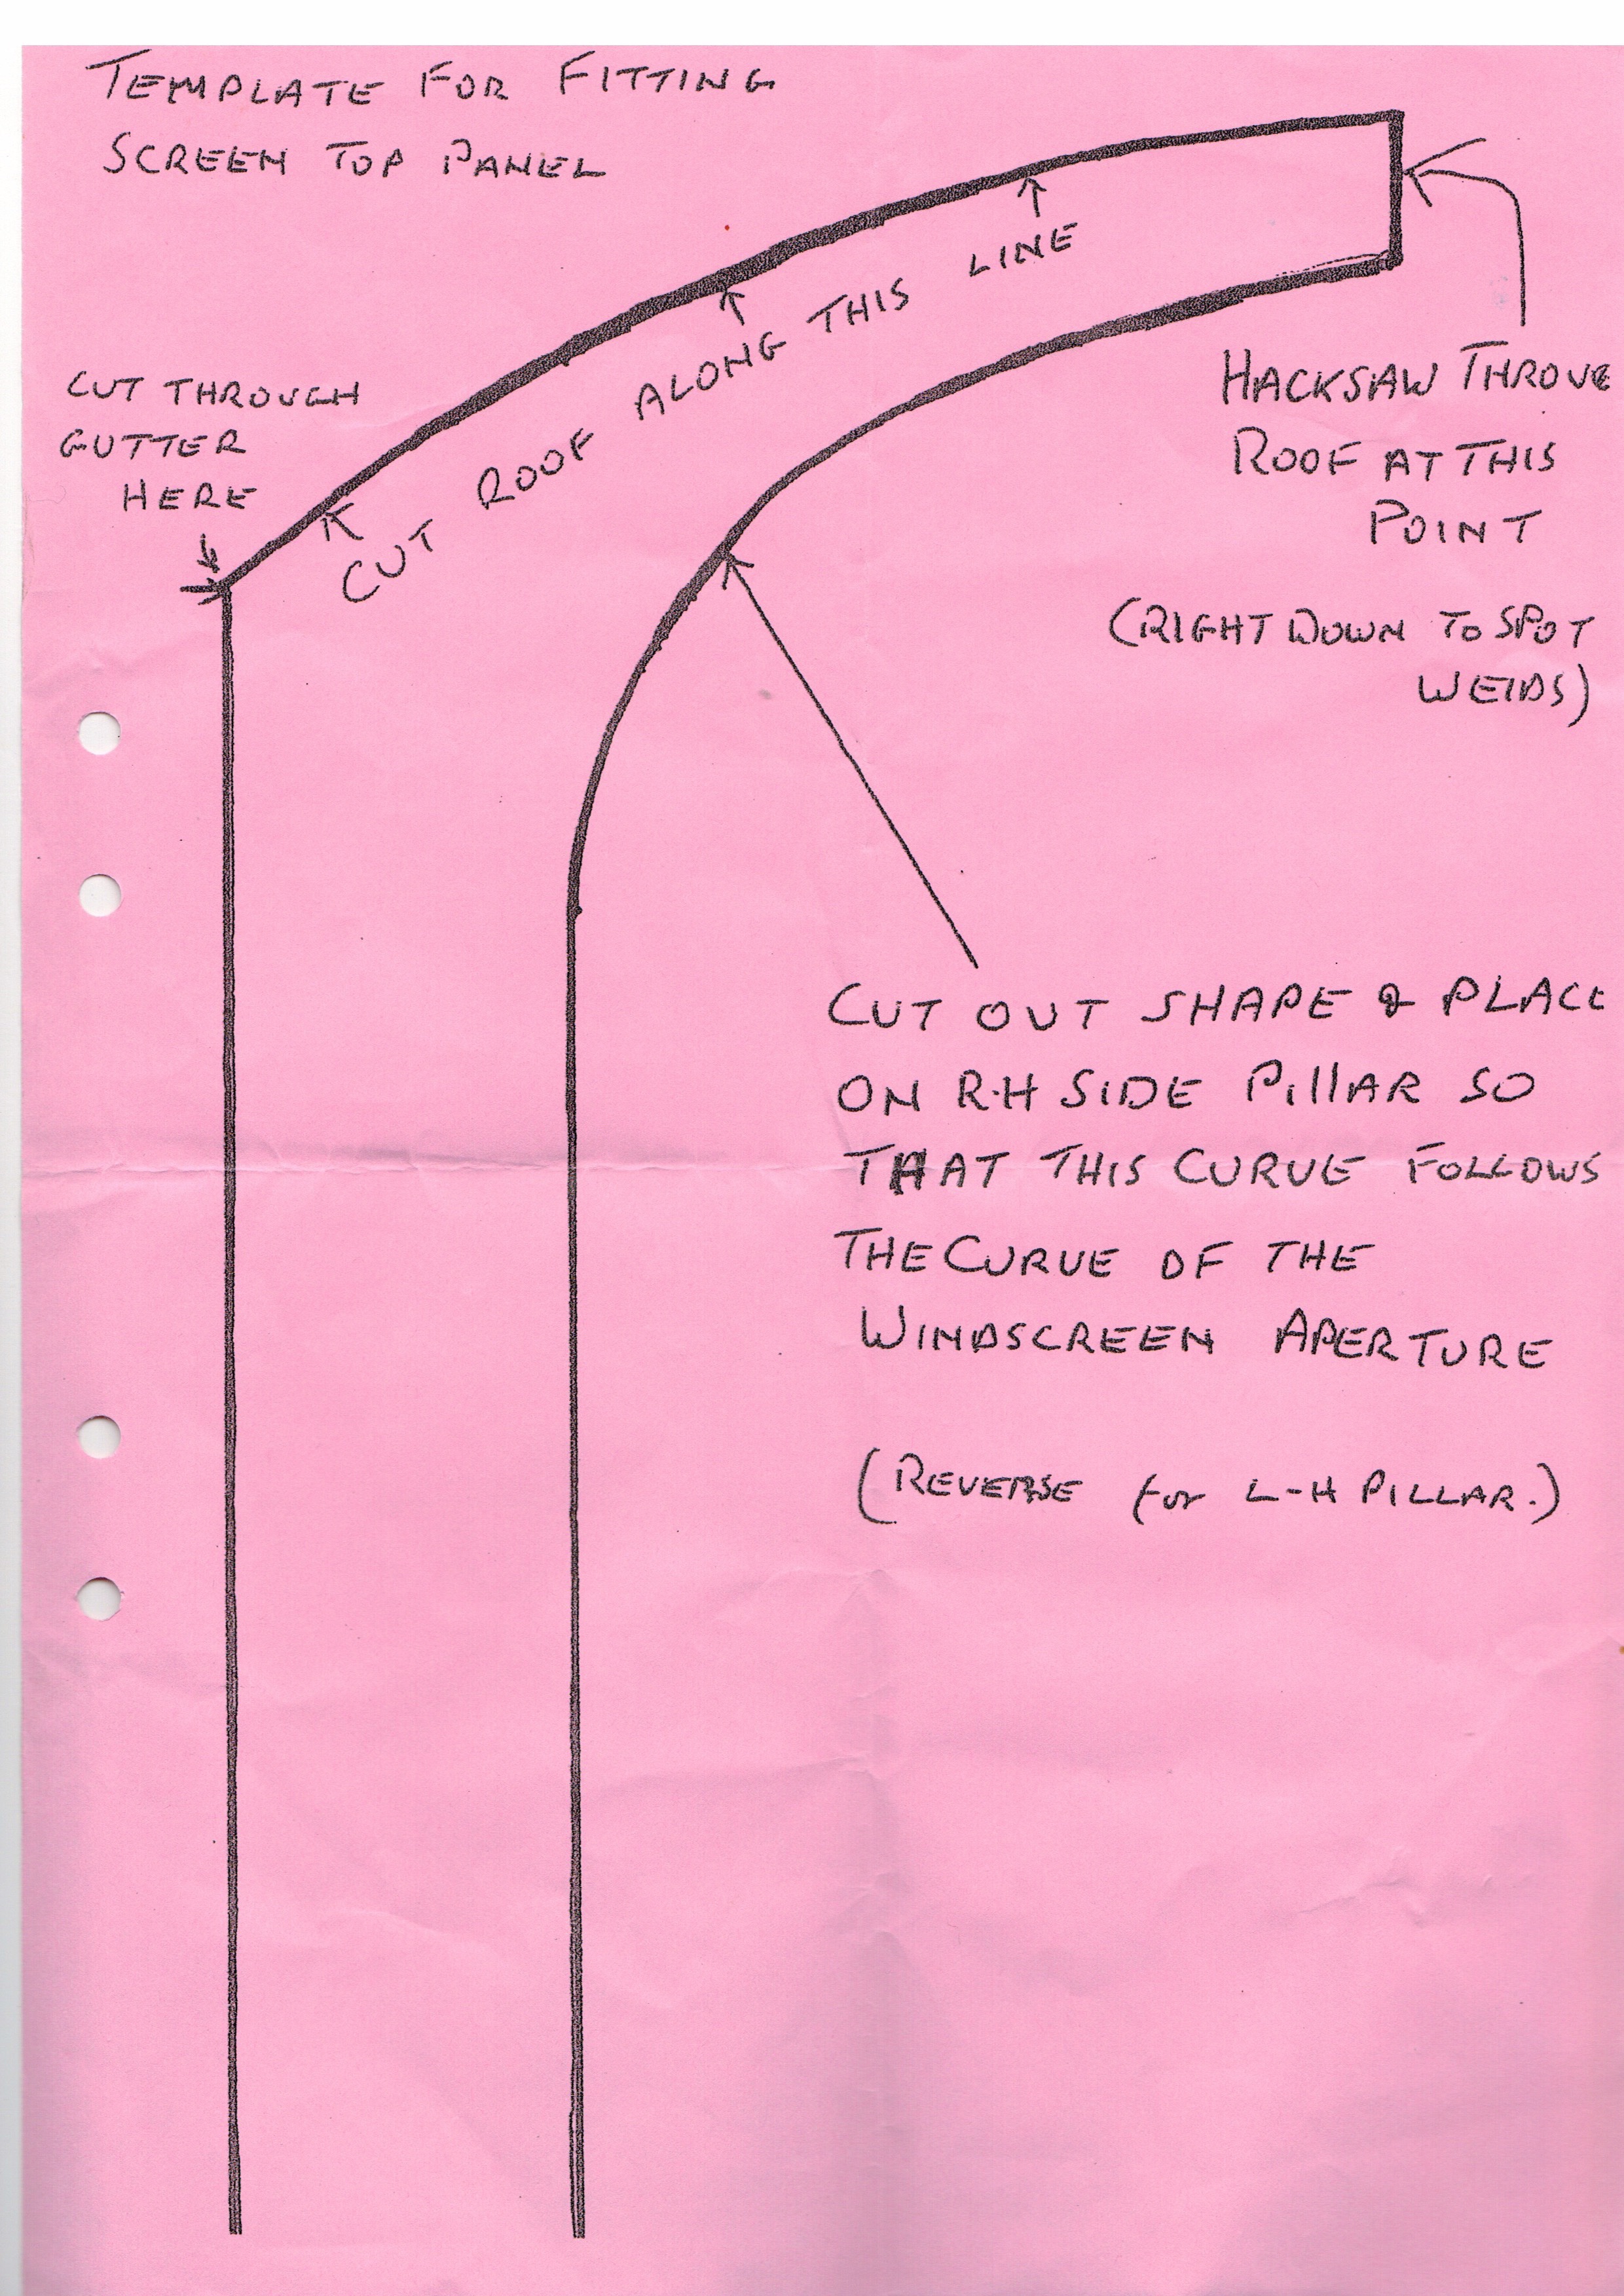 TEMPLATE FOR FITTING
SCREEN TOP PANEL
CUT THROUGH
GUTTER
HERE
CUT ROOF ALONG THIS LINE
HACKSAW THROUG
ROOF AT THIS
POINT
(RIGHT DOWN TO SPOT
WELDS)
CUT OUT SHAPE & PLACE
ON R-H SIDE PillAR SO
THAT THIS CURVE FOLLOWS
THE CURVE OF THE
WINDSCREEN APERTURE
(REVERSE for L-H PILLAR.)